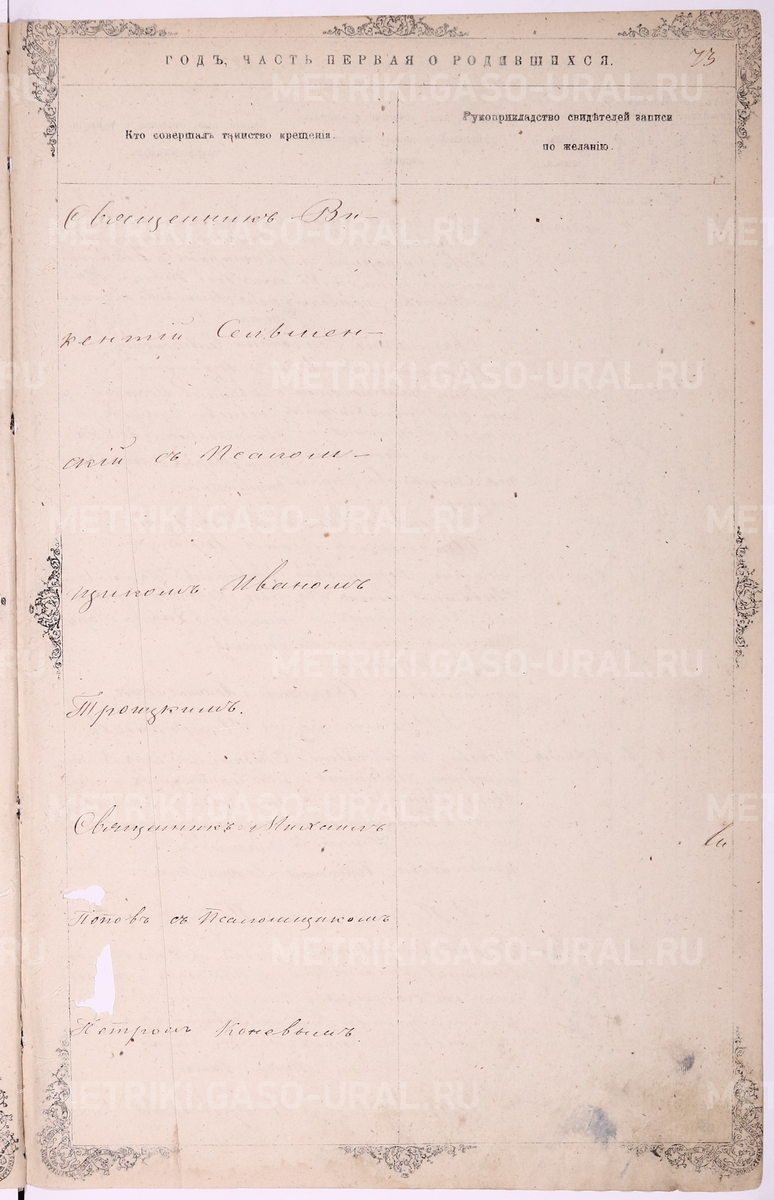 ГОДЪ, ЧАСТЬ ПЕРВАЯ О РОДИВШИХСЯ.
73
Кто совершалъ таинство крещенія.
Рукоприкладство свидѣтелей записи
по желанію.
Священникъ Ви-
кентій Сельмен-
скій съ Псалом-
щикомъ Иваномъ
Троицкимъ.
Священникъ Михаилъ
Поповъ съ Псаломщикомъ
Петромъ Коневымъ.
METRIKI.GASO-URAL.RU